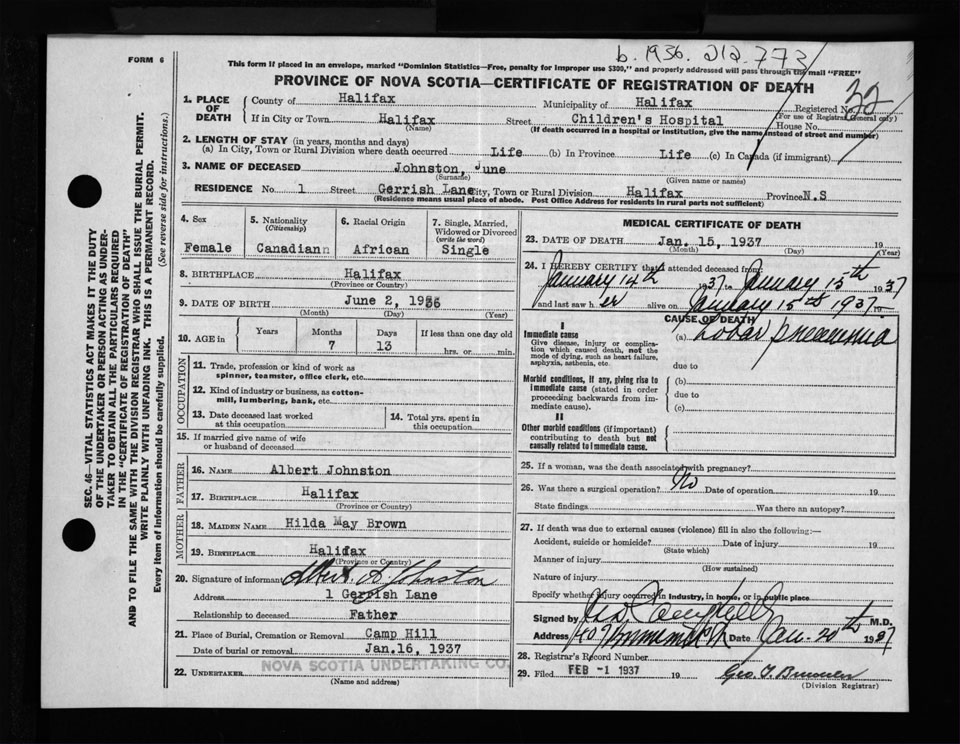 b. 1936. 212.773
FORM 6
This form if placed in an envelope, marked "Dominion Statistics—Free, penalty for improper use $300," and properly addressed will pass through the mail "FREE"
PROVINCE OF NOVA SCOTIA—CERTIFICATE OF REGISTRATION OF DEATH
SEC. 46—VITAL STATISTICS ACT MAKES IT THE DUTY
OF THE UNDERTAKER OR PERSON ACTING AS UNDER-
TAKER TO OBTAIN ALL THE PARTICULARS REQUIRED
IN THE "CERTIFICATE OF REGISTRATION OF DEATH"
AND TO FILE THE SAME WITH THE DIVISION REGISTRAR WHO SHALL ISSUE THE BURIAL PERMIT.
WRITE PLAINLY WITH UNFADING INK. THIS IS A PERMANENT RECORD.
Every item of information should be carefully supplied. (See reverse side for instructions.)
1. PLACE OF DEATH
County of Halifax Municipality of Halifax Registered No. 32
(For use of Registrar General only)
If in City or Town Halifax Street Children's Hospital House No.
(Name) (If death occurred in a hospital or institution, give the name instead of street and number)
2. LENGTH OF STAY (in years, months and days)
(a) In City, Town or Rural Division where death occurred Life (b) In Province Life (c) In Canada (if immigrant)
3. NAME OF DECEASED Johnston, June
(Surname) (Given name or names)
RESIDENCE No. 1 Street Gerrish Lane City, Town or Rural Division Halifax Province N.S
(Residence means usual place of abode. Post Office Address for residents in rural parts not sufficient)
4. Sex Female
5. Nationality (Citizenship) Canadiann
6. Racial Origin African
7. Single, Married, Widowed or Divorced (write the word) Single
8. BIRTHPLACE Halifax
(Province or Country)
9. DATE OF BIRTH June 2, 1936
(Month) (Day) (Year)
10. AGE in Years Months 7 Days 13 If less than one day old hrs. or min.
OCCUPATION
11. Trade, profession or kind of work as
spinner, teamster, office clerk, etc.
12. Kind of industry or business, as cotton-
mill, lumbering, bank, etc.
13. Date deceased last worked
at this occupation
14. Total yrs. spent in
this occupation
15. If married give name of wife
or husband of deceased
FATHER
16. NAME Albert Johnston
17. BIRTHPLACE Halifax
(Province or Country)
MOTHER
18. MAIDEN NAME Hilda May Brown
19. BIRTHPLACE Halifax
(Province or Country)
20. Signature of informant Albert A. Johnston
Address 1 Gerrish Lane
Relationship to deceased Father
21. Place of Burial, Cremation or Removal Camp Hill
Date of burial or removal Jan. 16, 1937
22. UNDERTAKER NOVA SCOTIA UNDERTAKING CO.
(Name and address)
MEDICAL CERTIFICATE OF DEATH
23. DATE OF DEATH Jan. 15, 1937 19
(Month) (Day) (Year)
24. I HEREBY CERTIFY that I attended deceased from
January 14th 1937 to January 15th 1937
and last saw her alive on January 15th 1937 19
CAUSE OF DEATH
I
Immediate cause
Give disease, injury or complica-
tion which caused death, not the
mode of dying, such as heart failure,
asphyxia, asthenia, etc.
(a) Lobar pneumonia
due to
Morbid conditions, if any, giving rise to
immediate cause (stated in order
proceeding backwards from im-
mediate cause).
(b)
due to
(c)
II
Other morbid conditions (if important)
contributing to death but not
causally related to immediate cause.
25. If a woman, was the death associated with pregnancy?
26. Was there a surgical operation? No Date of operation 19
State findings Was there an autopsy?
27. If death was due to external causes (violence) fill in also the following:—
Accident, suicide or homicide? Date of injury 19
(State which)
Manner of injury
(How sustained)
Nature of injury
Specify whether injury occurred in industry, in home, or in public place
Signed by Campbell M.D.
Address Date Jan. 20th 1937
28. Registrar's Record Number
29. Filed FEB -1 1937 19
(Division Registrar)